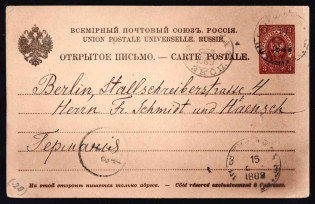 ВСЕМІРНЫЙ ПОЧТОВЫЙ СОЮЗЪ. РОССІЯ.
UNION POSTALE UNIVERSELLE. RUSSIE.
ОТКРЫТОЕ ПИСЬМО. — CARTE POSTALE.
Berlin, Stallschreiberstrasse
Herrn Fr. Schmidt und Haensch
Германія
15
1889
На этой сторонѣ пишется только адресъ. — Côté réservé exclusivement à l'adresse.